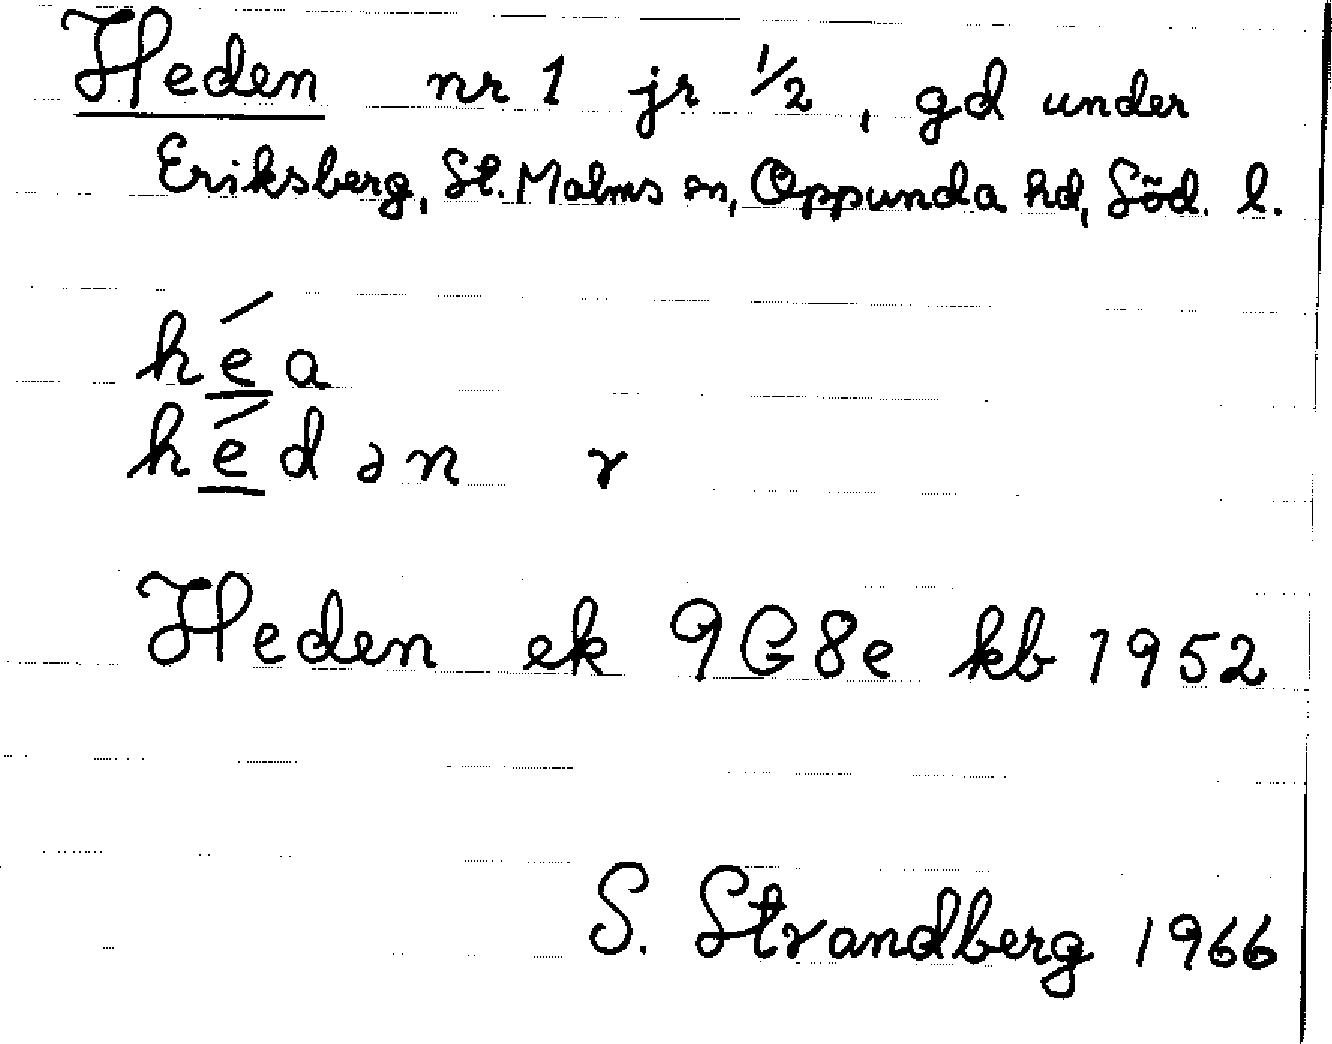 Heden nr 1 jr 1/2, gd under
Eriksberg, St. Malms sn, Oppunda hd, Söd. l.
hé̱a
hé̱dən r
Heden ek 9G8e kb 1952
S. Strandberg 1966